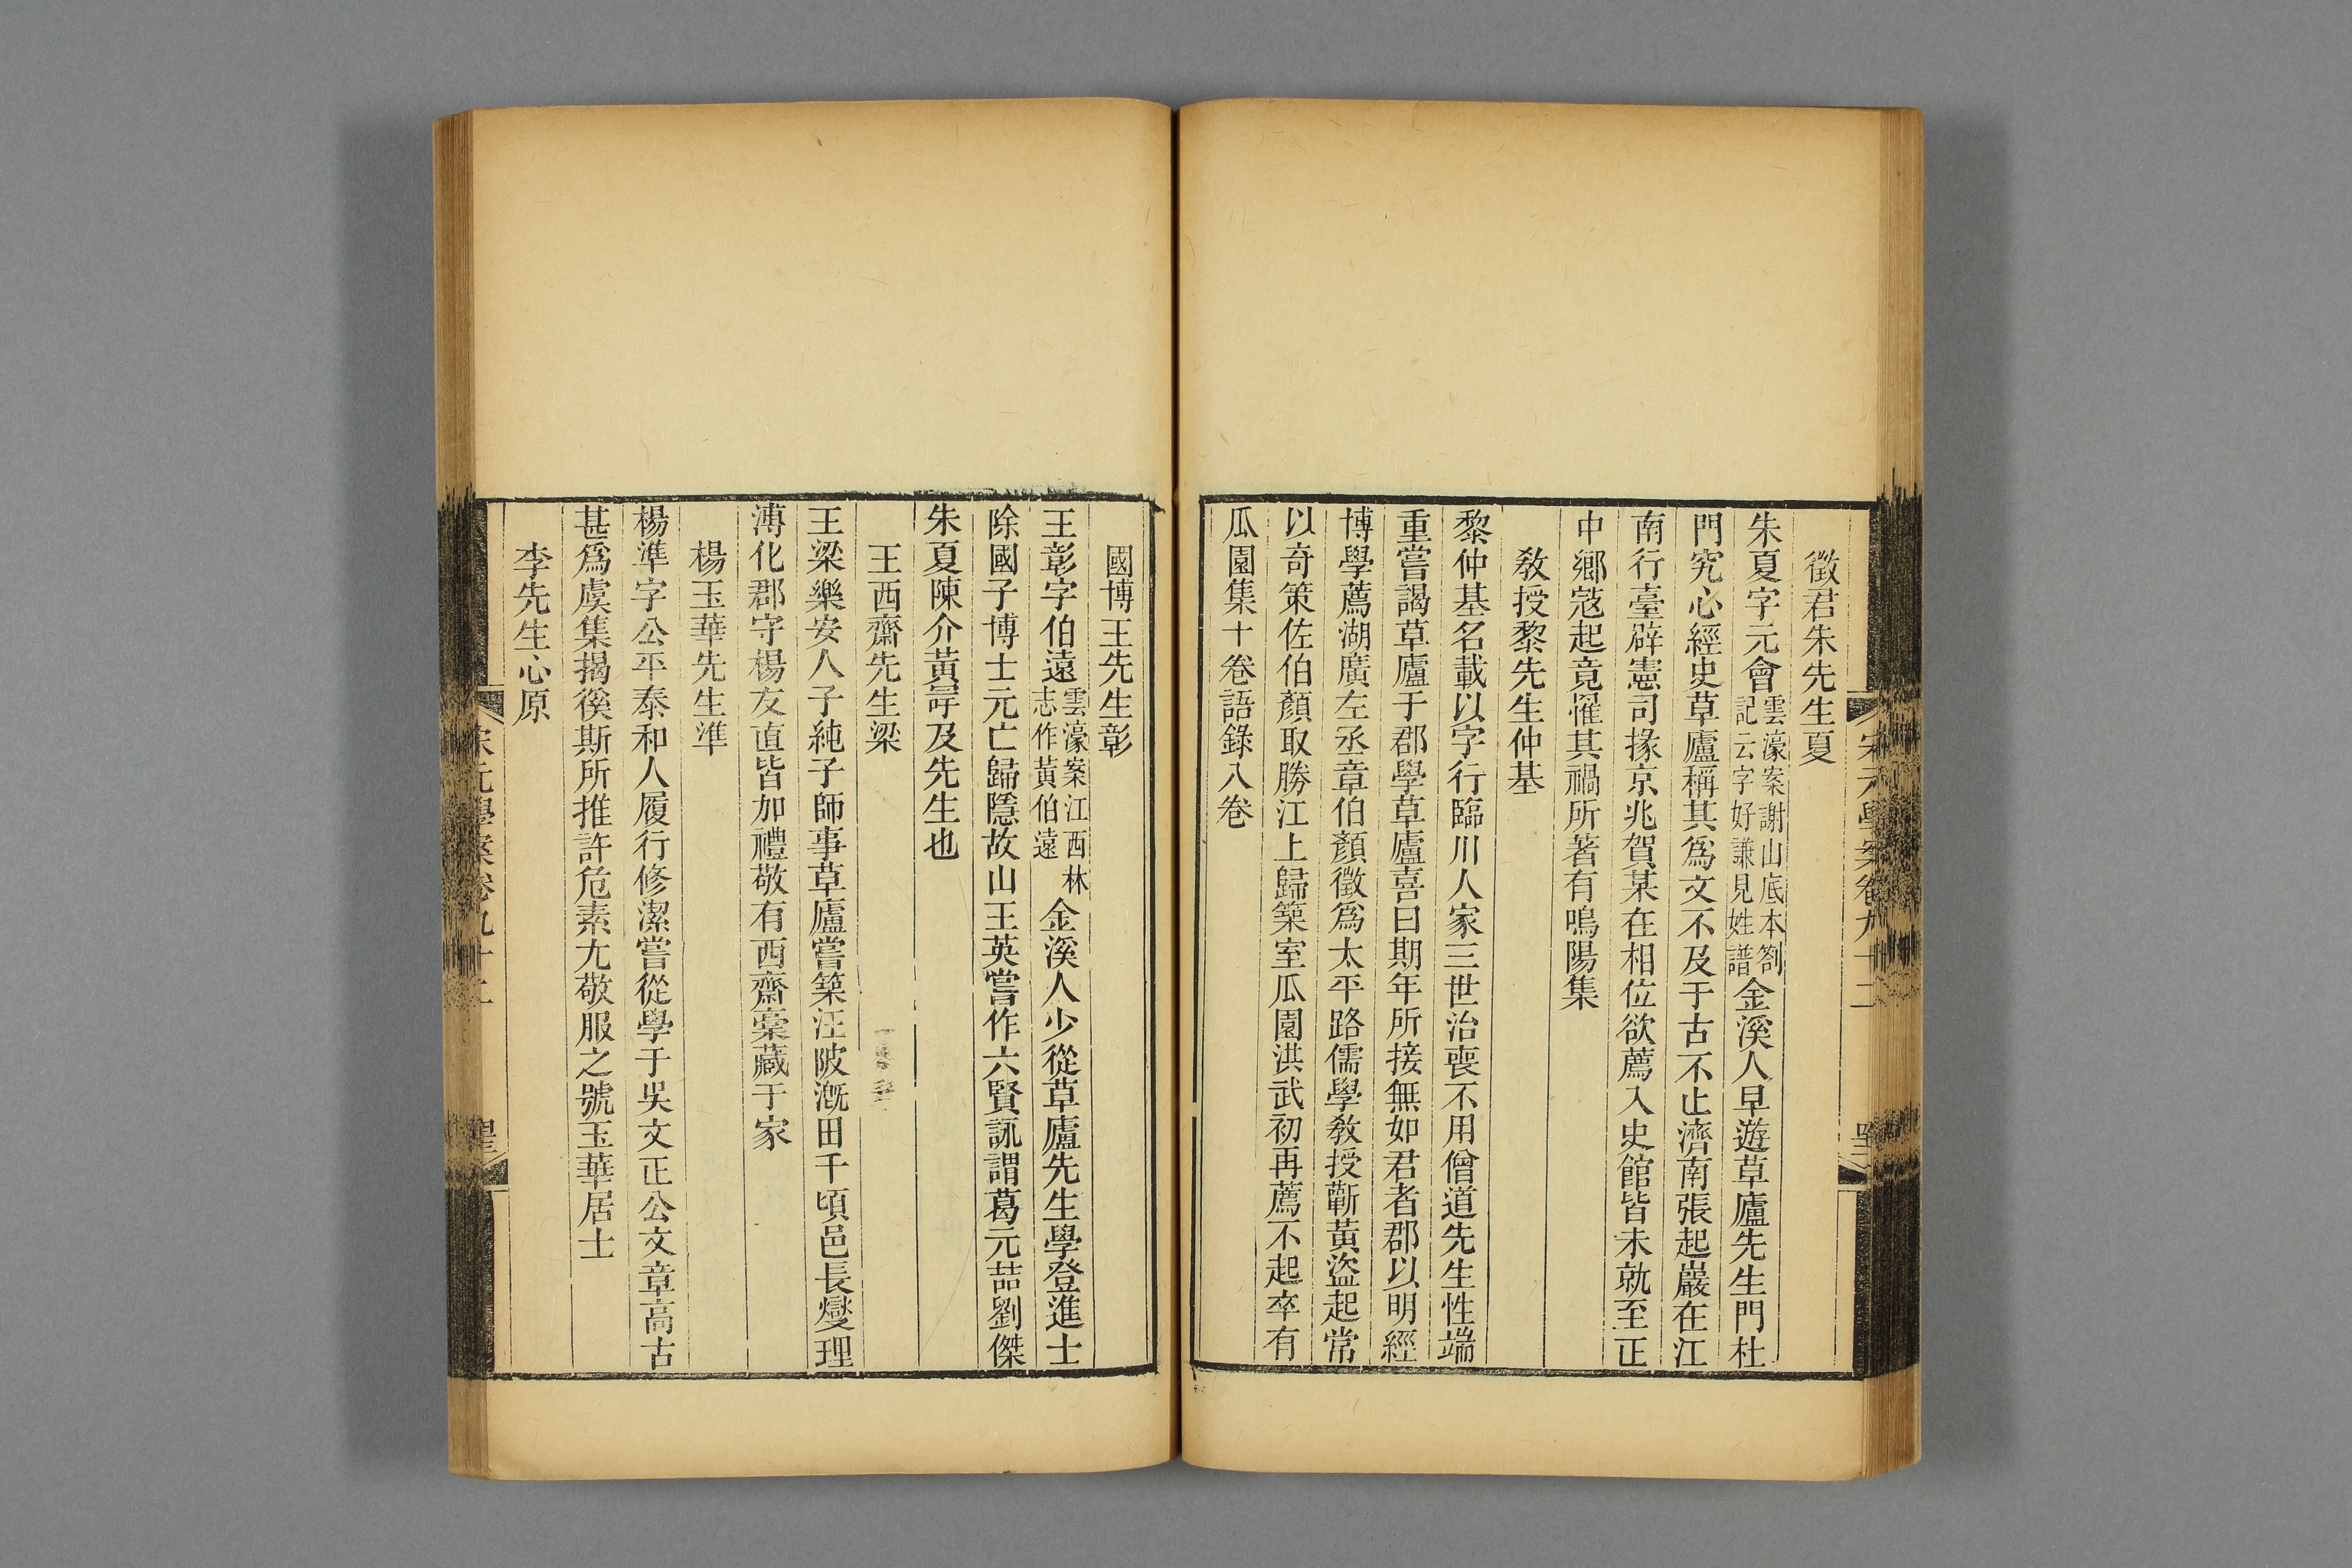 徵君朱先生夏
朱夏字元會雲濠案謝山底本劄記云字好謙見姓譜金溪人早遊草廬先生門杜
門究心經史草廬稱其爲文不及于古不止濟南張起巖在江
南行臺辟憲司掾京兆賀某在相位欲薦入史館皆未就至正
中鄉寇起竟罹其禍所著有鳴陽集
敎授黎先生仲基
黎仲基名載以字行臨川人家三世治喪不用僧道先生性端
重嘗謁草廬于郡學草廬喜曰期年所接無如君者郡以明經
博學薦湖廣左丞章伯顏徵爲太平路儒學敎授蘄黃盜起常
以奇策佐伯顏取勝江上歸築室瓜園洪武初再薦不起卒有
瓜園集十卷語錄八卷
宋元學案卷九十二
國博王先生彰
王彰字伯遠雲濠案江西林志作黃伯遠金溪人少從草廬先生學登進士
除國子博士元亡歸隱故山王英嘗作六賢詠謂葛元喆劉傑
朱夏陳介黃冔及先生也
王西齋先生梁
王梁樂安人子純子師事草廬嘗築汪陂漑田千頃邑長燮理
溥化郡守楊友直皆加禮敬有西齋稾藏于家
楊玉華先生準
楊準字公平泰和人履行修潔嘗從學于吳文正公文章高古
甚爲虞集揭傒斯所推許危素尤敬服之號玉華居士
李先生心原
宋元學案卷九十二